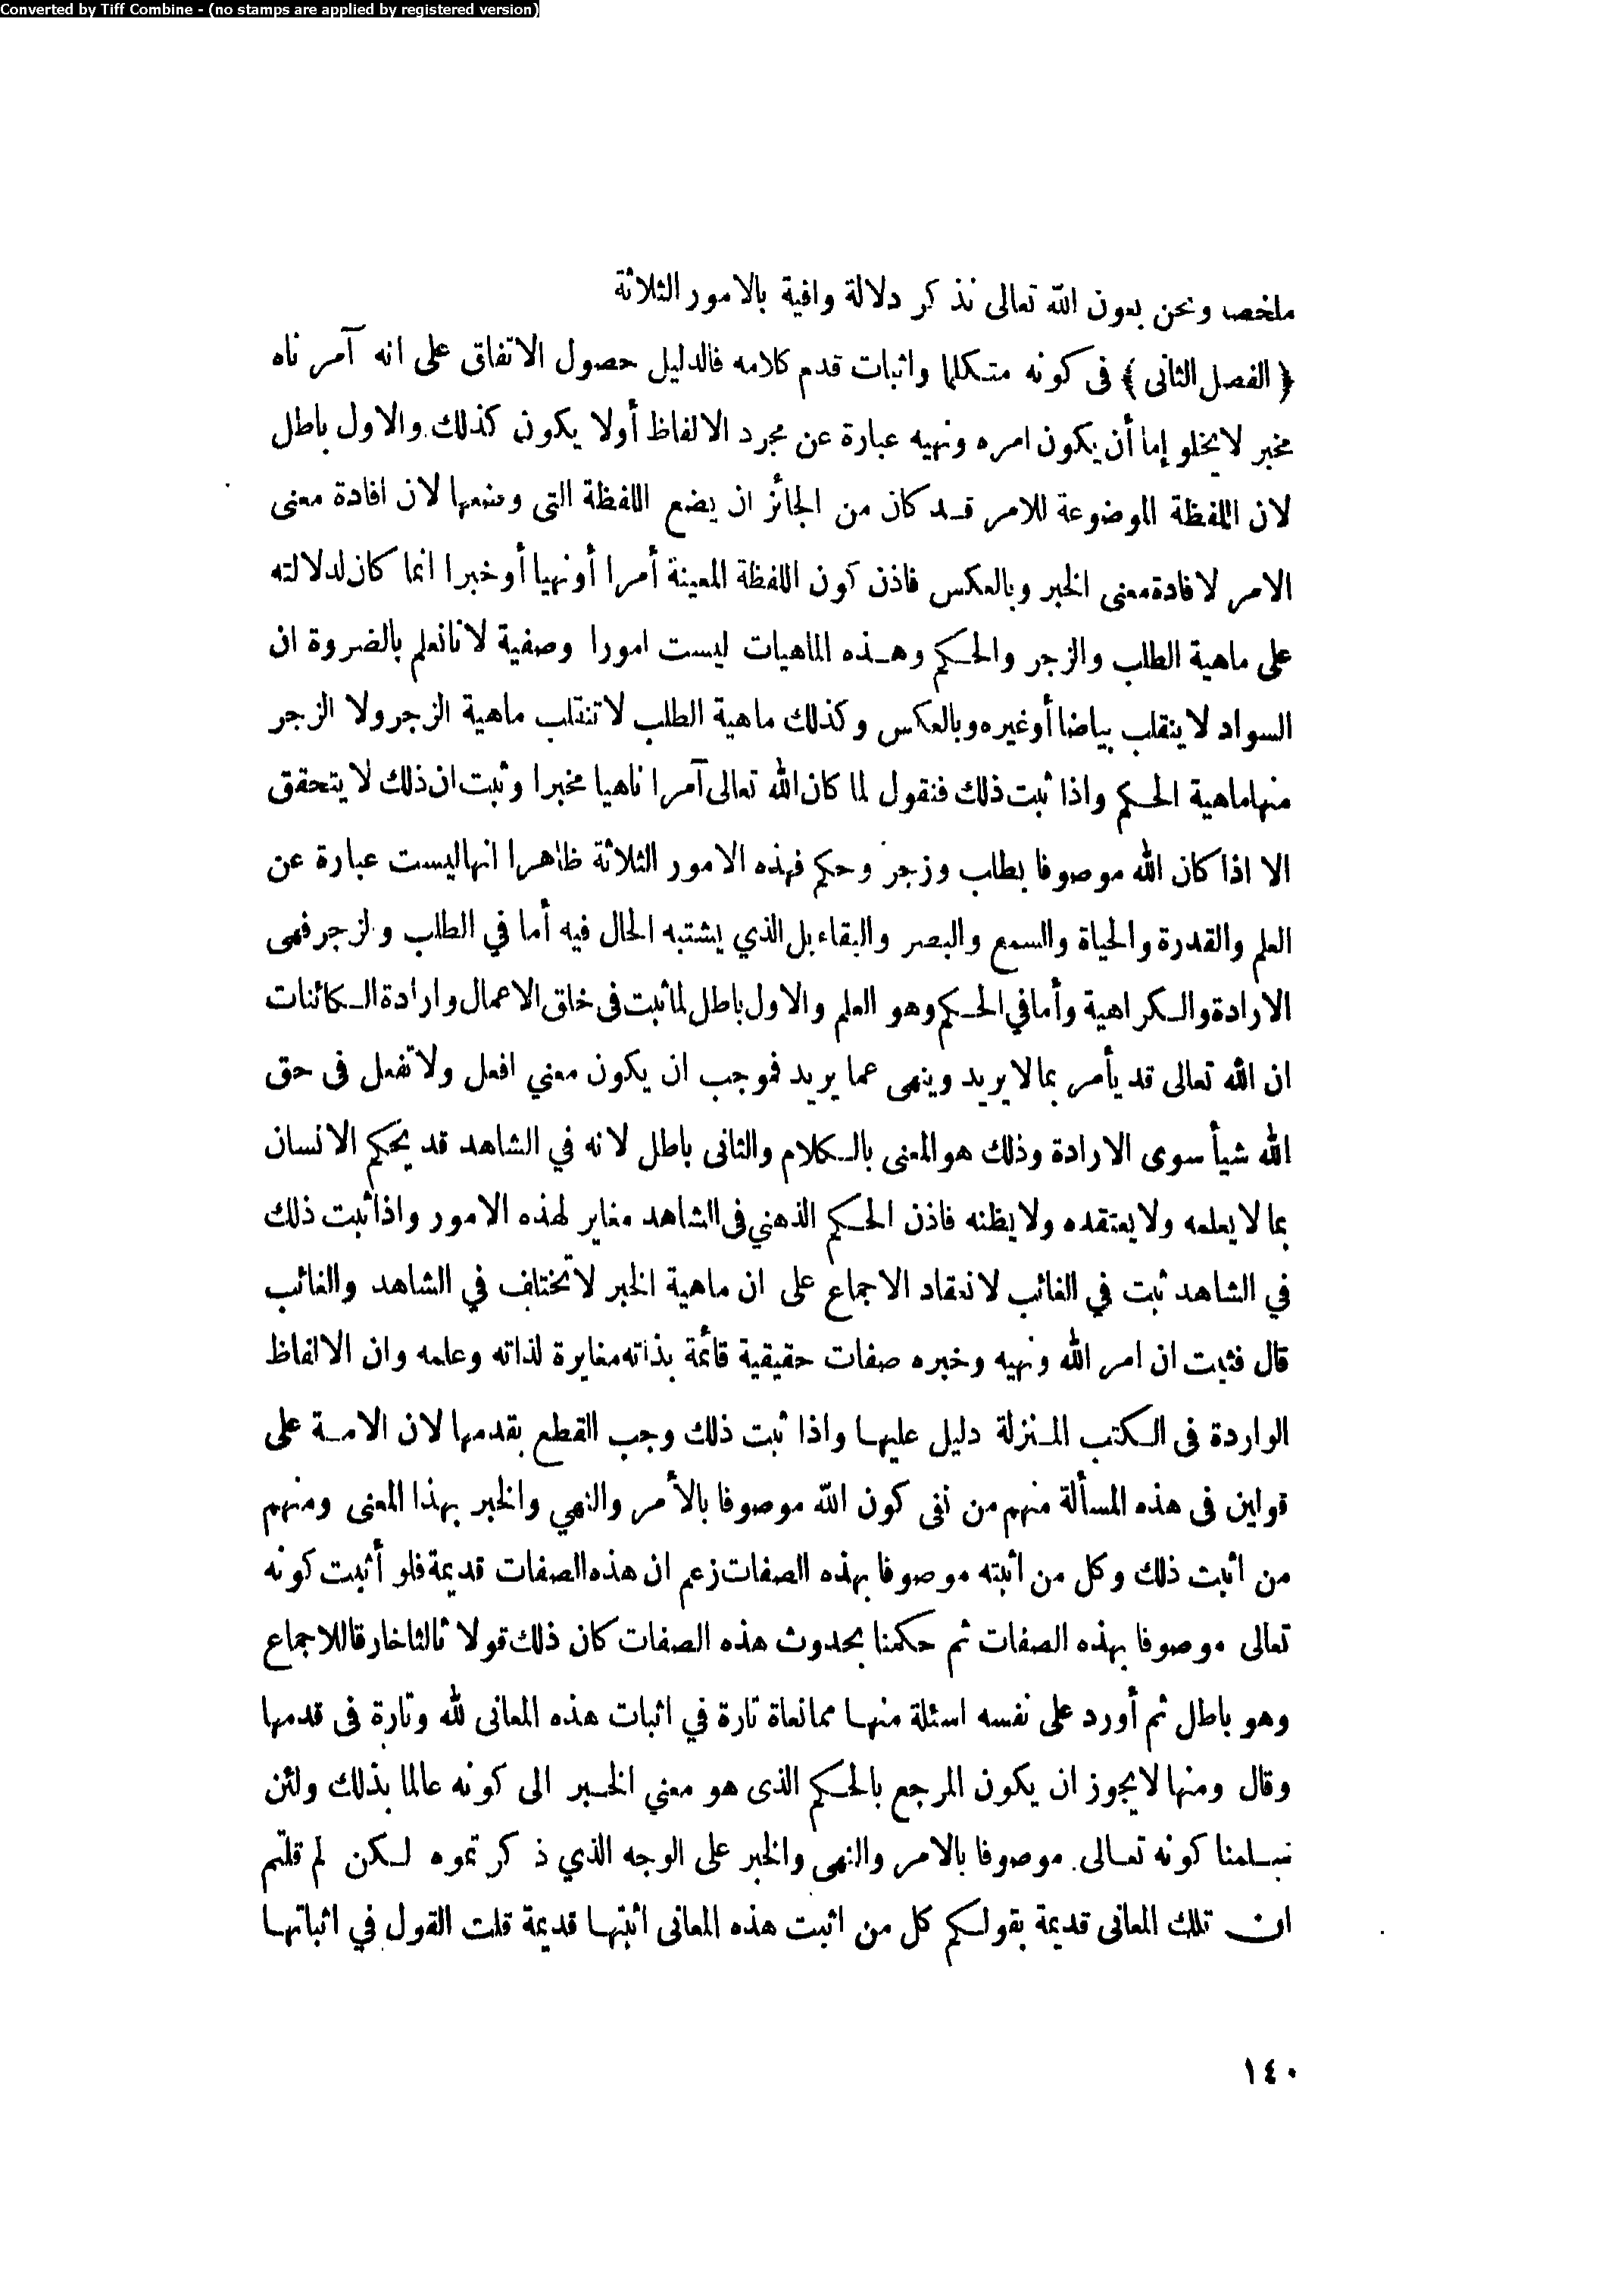 Converted by Tiff Combine - (no stamps are applied by registered version)
ملخص ونحن بعون الله تعالى نذكر دلالة وافية بالامور الثلاثة
﴿ الفصل الثانى ﴾ فى كونه متكلما واثبات قدم كلامه فالدليل حصول الاتفاق على انه آمر ناه
مخبر لايخلو إما أن يكون امره ونهيه عبارة عن مجرد الالفاظ أولا يكون كذلك والاول باطل
لان اللفظة الموضوعة للامر قد كان من الجائز ان يضع اللفظة التى وضعها لان افادة معنى
الامر لافادة معنى الخبر وبالعكس فاذن كون اللفظة المعينة أمرا أونهيا أوخبرا انما كان لدلالته
على ماهية الطلب والزجر والحكم وهذه الماهيات ليست امورا وصفية لانانعلم بالضروة ان
السواد لاينقلب بياضا أوغيره وبالعكس وكذلك ماهية الطلب لاتنقلب ماهية الزجر ولا الزجر
منهاماهية الحكم واذا ثبت ذلك فنقول لما كان الله تعالى آمرا ناهيا مخبرا وثبت ان ذلك لا يتحقق
الا اذا كان الله موصوفا بطلب وزجر وحكم فهذه الامور الثلاثة ظاهرا انهاليست عبارة عن
العلم والقدرة والحياة والسمع والبصر والبقاء بل الذي يشتبه الحال فيه أما في الطلب والزجر فهى
الارادة والكراهية وأما في الحكم وهو العلم والاول باطل لماثبت فى خلق الاعمال وارادة الكائنات
ان الله تعالى قد يأمر بمالا يريد وينهى عما يريد فوجب ان يكون معني افعل ولا تفعل فى حق
الله شيأ سوى الارادة وذلك هو المعنى بالكلام والثانى باطل لانه في الشاهد قد يحكم الانسان
بما لا يعلمه ولا يعتقده ولا يظنه فاذن الحكم الذهني فى الشاهد مغاير لهذه الامور واذا ثبت ذلك
في الشاهد ثبت في الغائب لانعقاد الاجماع على ان ماهية الخبر لاتختلف في الشاهد والغائب
قال فثبت ان امر الله ونهيه وخبره صفات حقيقية قائمة بذاته مغايرة لذاته وعلمه وان الالفاظ
الواردة فى الكتب المنزلة دليل عليها واذا ثبت ذلك وجب القطع بقدمها لان الامة على
قولين فى هذه المسألة منهم من نفى كون الله موصوفا بالأمر والنهي والخبر بهذا المعنى ومنهم
من اثبت ذلك وكل من اثبته موصوفا بهذه الصفات زعم ان هذه الصفات قديمة فلو أثبت كونه
تعالى موصوفا بهذه الصفات ثم حكمنا بحدوث هذه الصفات كان ذلك قولا ثالثا خارقا للاجماع
وهو باطل ثم أورد على نفسه اسئلة منها ممانعاة تارة في اثبات هذه المعانى لله وتارة فى قدمها
وقال ومنها لايجوز ان يكون المرجع بالحكم الذى هو معني الخبر الى كونه عالما بذلك ولئن
سلمنا كونه تعالى موصوفا بالامر والنهى والخبر على الوجه الذي ذكرتموه لكن لم قلتم
ان تلك المعانى قديمة بقولكم كل من اثبت هذه المعانى اثبتها قديمة قلت القول في اثباتها
١٤٠